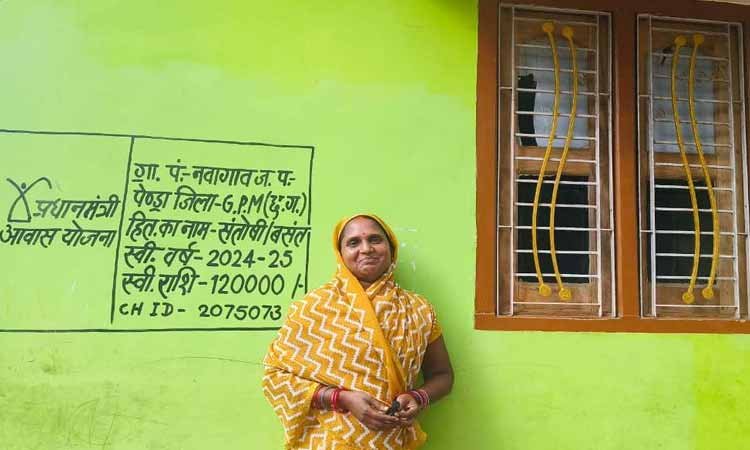 प्रधानमंत्री
आवास योजना
ग्रा. पं:- नवागाव ज. प:-
पेण्ड्रा जिला- G.P.M (छ.ग.)
हित. का नाम - संतोषी/बसंत
स्वी. वर्ष - 2024-25
स्वी. राशि - 120000/-
CH ID - 2075073